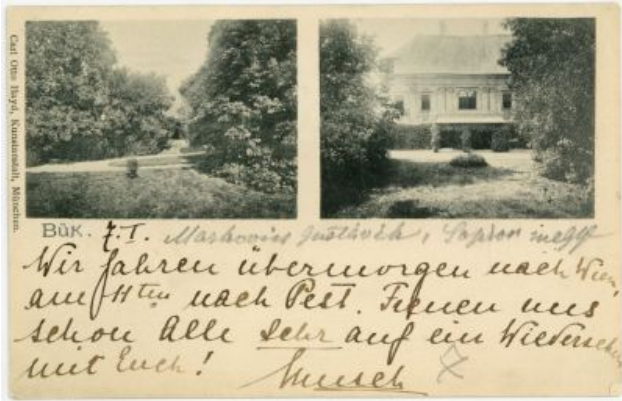 Carl Otto Hayd, Kunstanstalt, München.
Bük. 7.I. Markovics Gusztávék, Sopron megye
Wir fahren übermorgen nach Wien,
am 11ten nach Pest. Freuen uns
schon Alle sehr auf ein Wiedersehen
mit Euch!